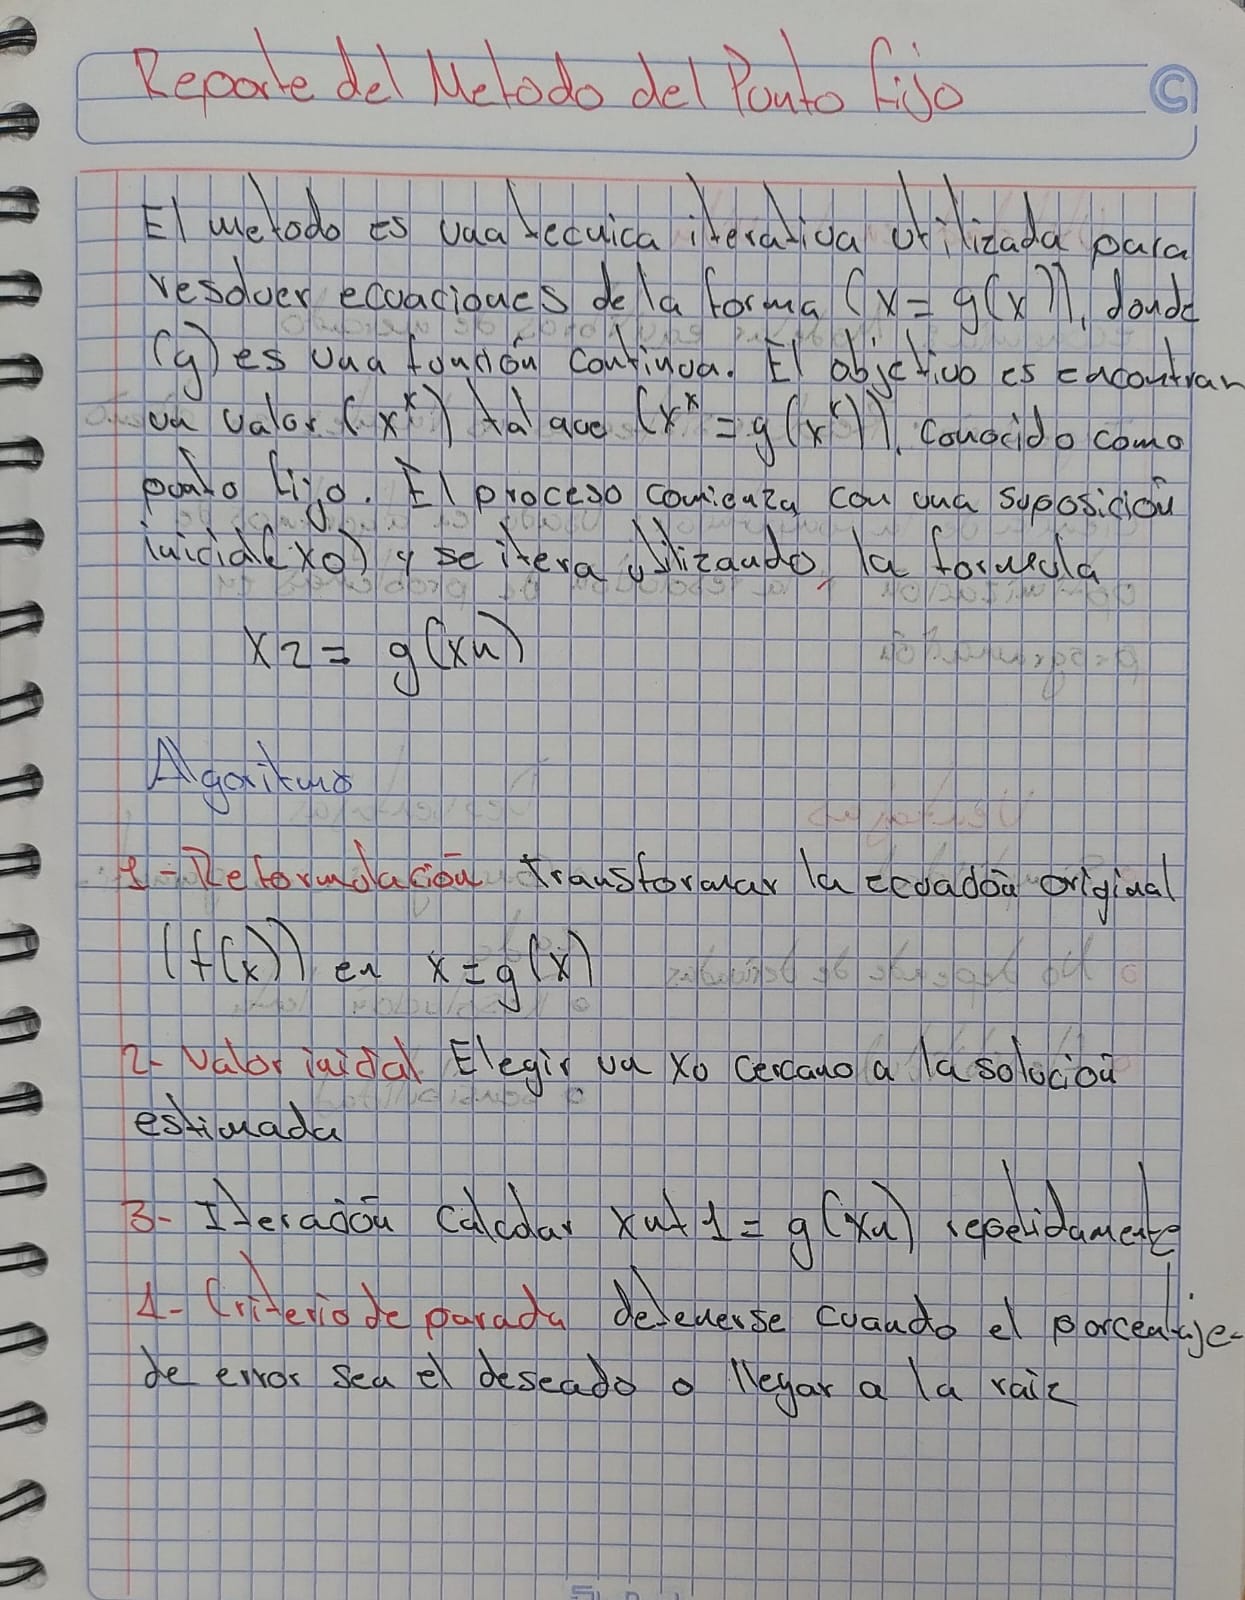 Reporte del Metodo del Punto fijo
El metodo es una tecnica iterativa utilizada para
resolver ecuaciones de la forma (x = g(x)), donde
(g) es una función continua. El objetivo es encontrar
un valor (x*) tal que (x* = g(x*)), conocido como
punto fijo. El proceso comienza con una suposición
inicial (x0) y se itera utilizando la formula
x2 = g(xn)
Algoritmo
1- Reformulación transformar la ecuación original
(f(x)) en x = g(x)
2- Valor inicial Elegir un x0 cercano a la solución
estimada
3- Iteración Calcular xn+1 = g(xn) repetidamente
4- Criterio de parada detenerse cuando el porcentaje
de error sea el deseado o llegar a la raiz